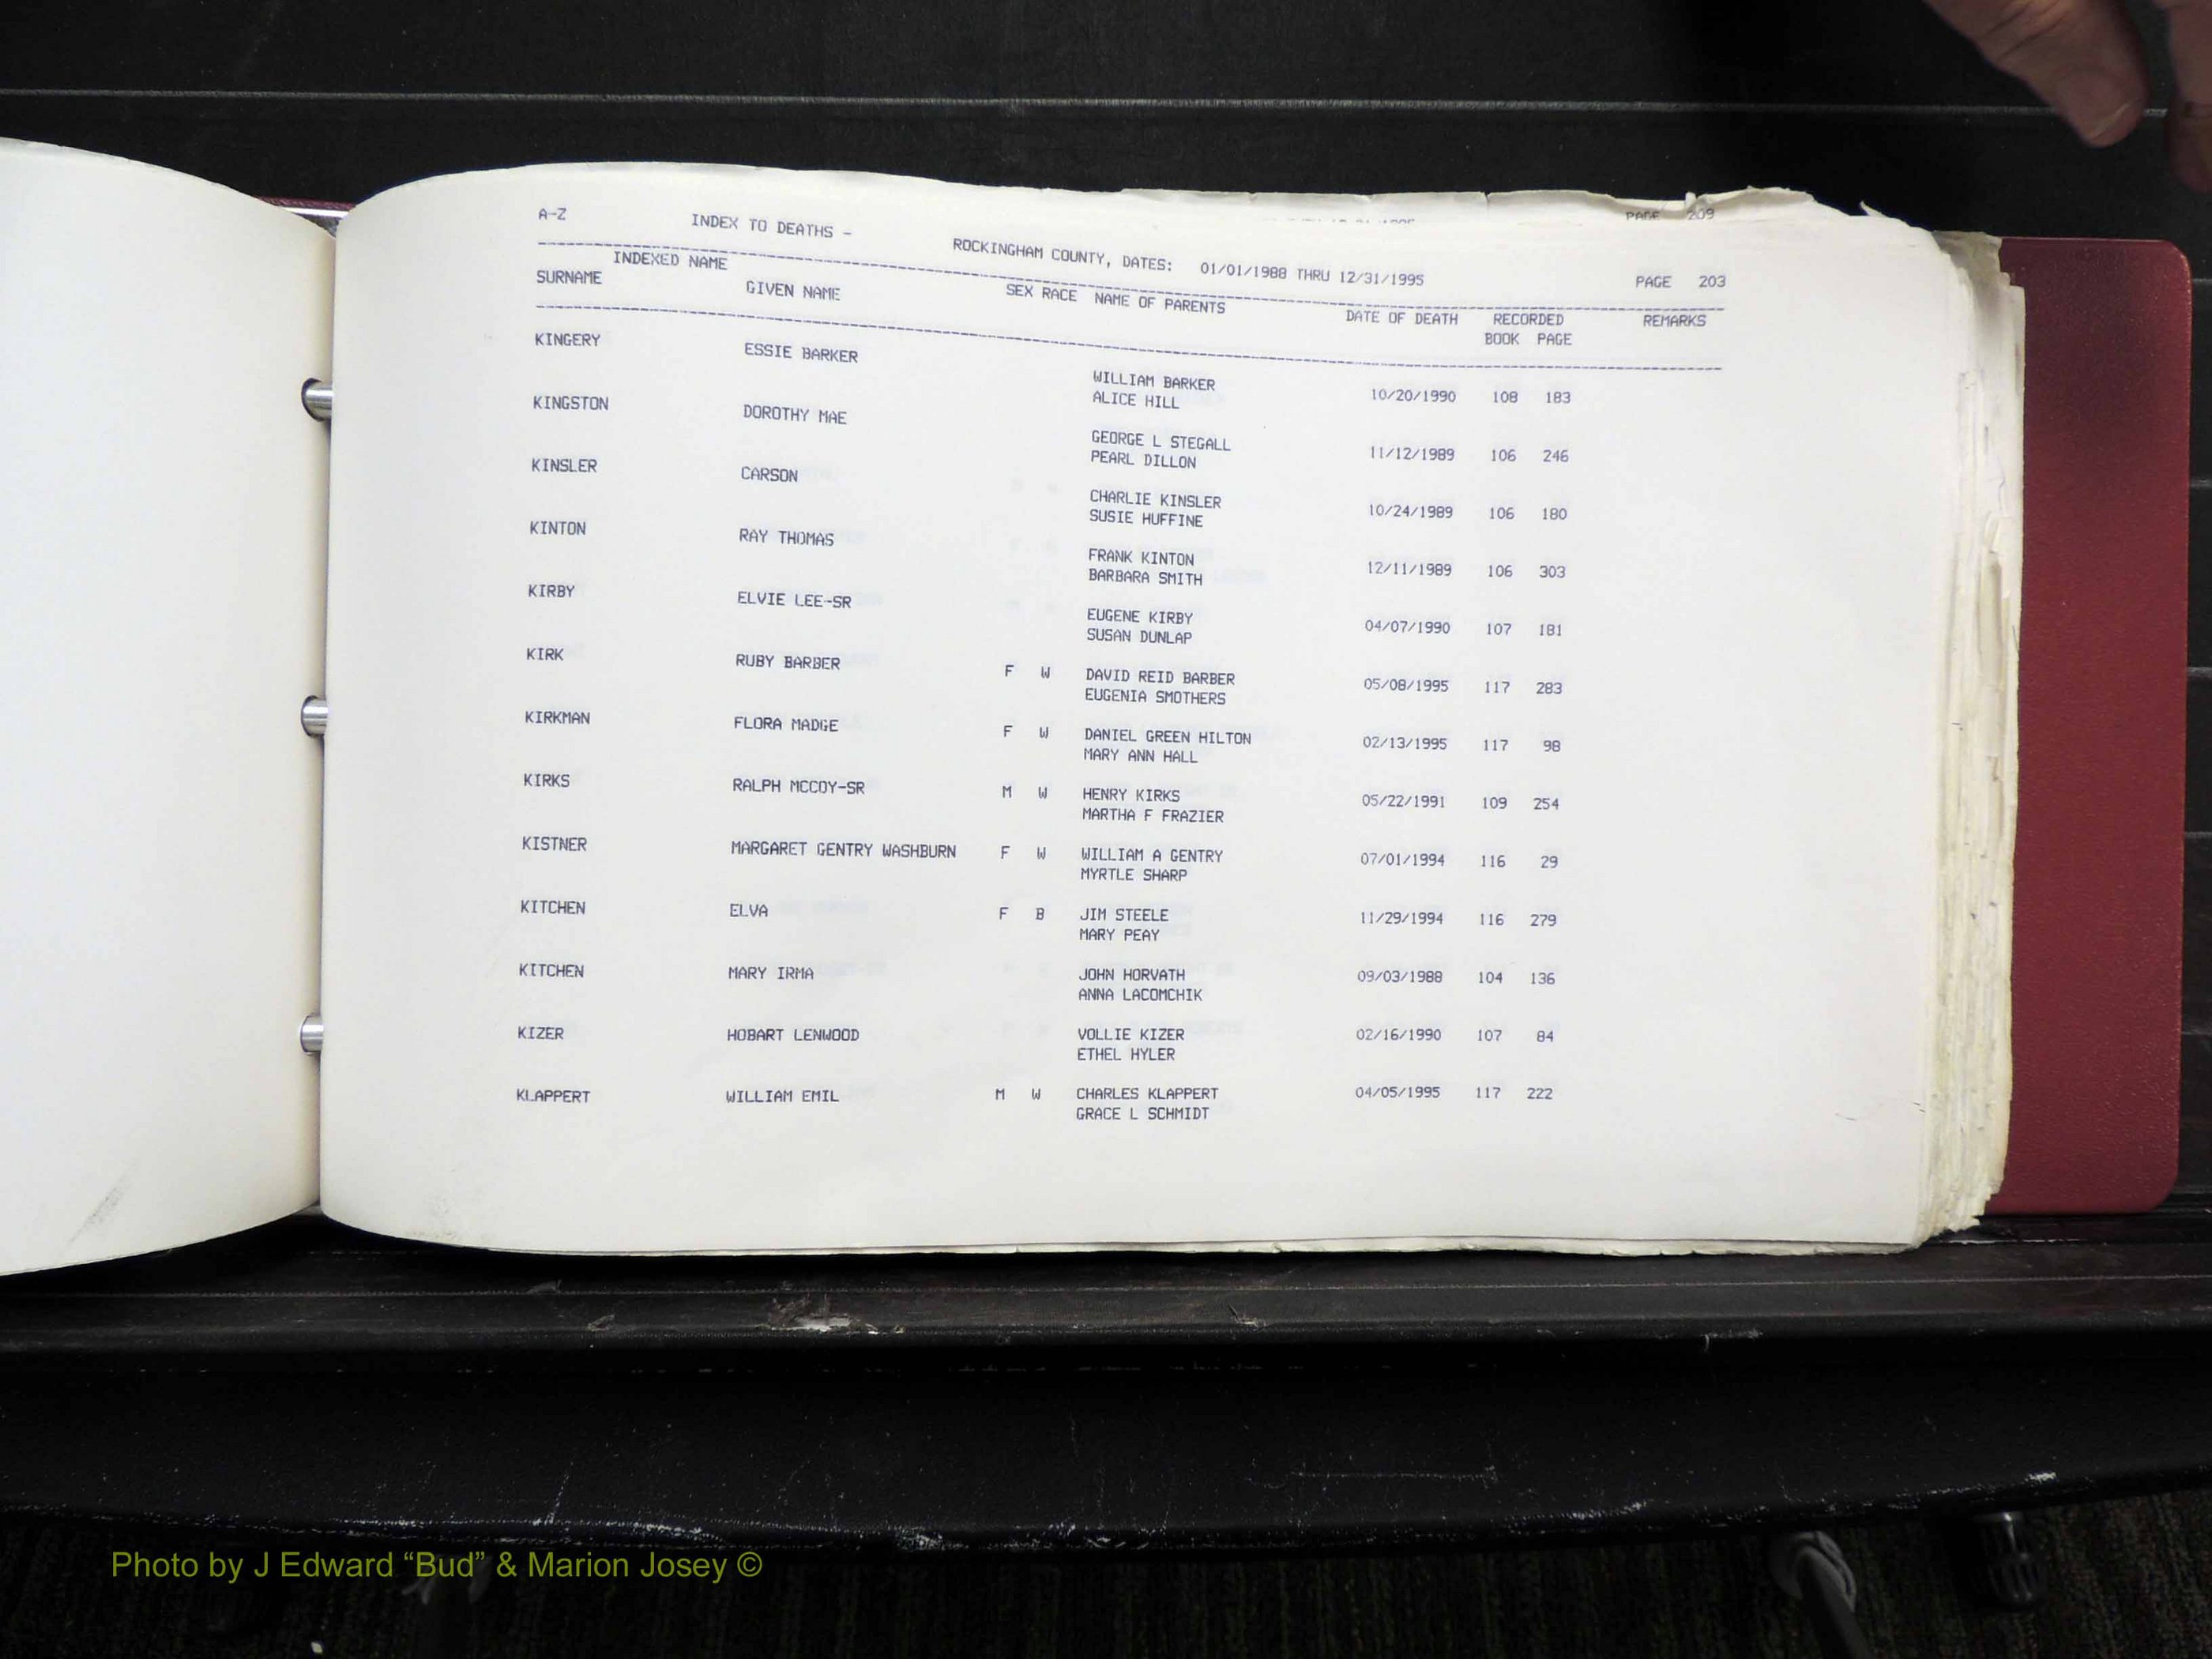 PAGE 209
A-Z INDEX TO DEATHS - ROCKINGHAM COUNTY, DATES: 01/01/1988 THRU 12/31/1995 PAGE 203
INDEXED NAME
SURNAME GIVEN NAME SEX RACE NAME OF PARENTS DATE OF DEATH RECORDED REMARKS
BOOK PAGE
KINGERY ESSIE BARKER WILLIAM BARKER 10/20/1990 108 183
ALICE HILL
KINGSTON DOROTHY MAE GEORGE L STEGALL 11/12/1989 106 246
PEARL DILLON
KINSLER CARSON CHARLIE KINSLER 10/24/1989 106 180
SUSIE HUFFINE
KINTON RAY THOMAS FRANK KINTON 12/11/1989 106 303
BARBARA SMITH
KIRBY ELVIE LEE-SR EUGENE KIRBY 04/07/1990 107 181
SUSAN DUNLAP
KIRK RUBY BARBER F W DAVID REID BARBER 05/08/1995 117 283
EUGENIA SMOTHERS
KIRKMAN FLORA MADGE F W DANIEL GREEN HILTON 02/13/1995 117 98
MARY ANN HALL
KIRKS RALPH MCCOY-SR M W HENRY KIRKS 05/22/1991 109 254
MARTHA F FRAZIER
KISTNER MARGARET GENTRY WASHBURN F W WILLIAM A GENTRY 07/01/1994 116 29
MYRTLE SHARP
KITCHEN ELVA F B JIM STEELE 11/29/1994 116 279
MARY PEAY
KITCHEN MARY IRMA JOHN HORVATH 09/03/1988 104 136
ANNA LACOMCHIK
KIZER HOBART LENWOOD VOLLIE KIZER 02/16/1990 107 84
ETHEL HYLER
KLAPPERT WILLIAM EMIL M W CHARLES KLAPPERT 04/05/1995 117 222
GRACE L SCHMIDT
Photo by J Edward “Bud” & Marion Josey ©